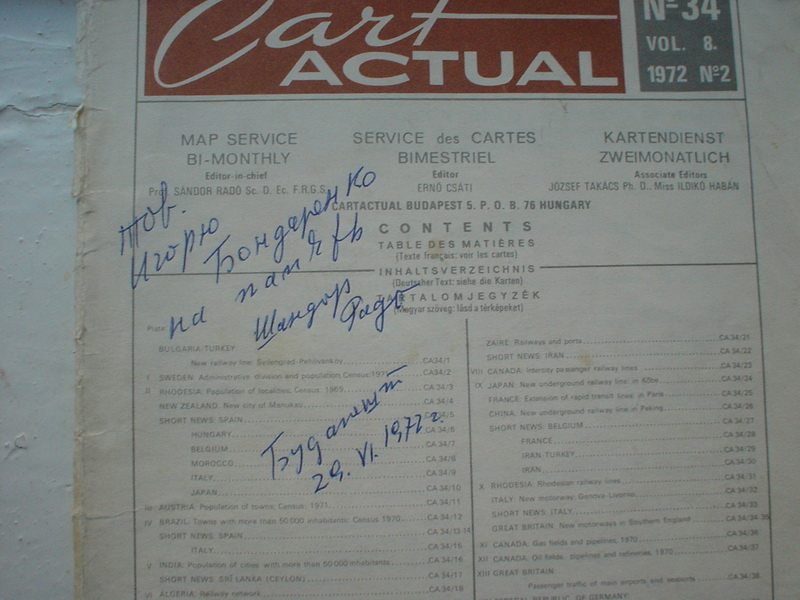 Cart
ACTUAL
Nº 34
VOL. 8.
1972 Nº 2
MAP SERVICE
BI-MONTHLY
Editor-in-chief
Prof. SÁNDOR RADÓ Sc. D. Ec. F.R.G.S.
SERVICE des CARTES
BIMESTRIEL
Editor
ERNŐ CSÁTI
KARTENDIENST
ZWEIMONATLICH
Associate Editors
JÓZSEF TAKÁCS Ph. D., Miss ILDIKÓ HABÁN
CARTACTUAL BUDAPEST 5. P. O. B. 76 HUNGARY
CONTENTS
TABLE DES MATIÈRES
(Texte français: voir les cartes)
INHALTSVERZEICHNIS
(Deutscher Text: siehe die Karten)
TARTALOMJEGYZÉK
(Magyar szöveg: lásd a térképeket)
Тов.
Игорю
Бондаренко
на память
Шандор
Радо
Будапешт
29. VI. 1972 г.
Plate
BULGARIA-TURKEY
New railway line: Svilengrad-Pehlivanköy CA 34/1
I SWEDEN: Administrative division and population Census 1971 CA 34/2
II RHODESIA: Population of localities; Census 1969 CA 34/3
NEW ZEALAND: New city of Manukau CA 34/4
SHORT NEWS: SPAIN CA 34/5
HUNGARY CA 34/6
BELGIUM CA 34/7
MOROCCO CA 34/8
ITALY CA 34/9
JAPAN CA 34/10
III AUSTRIA: Population of towns; Census 1971 CA 34/11
IV BRAZIL: Towns with more than 50 000 inhabitants; Census 1970 CA 34/12
SHORT NEWS: SPAIN CA 34/13-14
ITALY CA 34/15
V INDIA: Population of cities with more than 50 000 inhabitants CA 34/16
SHORT NEWS: SRI LANKA (CEYLON) CA 34/17
VI ALGERIA: Railway network CA 34/18
ZAIRE: Railways and ports CA 34/21
SHORT NEWS: IRAN CA 34/22
VIII CANADA: Intercity passenger railway lines CA 34/23
IX JAPAN: New underground railway line in Kobe CA 34/24
FRANCE: Extension of rapid transit lines in Paris CA 34/25
CHINA: New underground railway line in Peking CA 34/26
SHORT NEWS: BELGIUM CA 34/27
FRANCE CA 34/28
IRAN-TURKEY CA 34/29
IRAN CA 34/30
X RHODESIA: Rhodesian railway lines CA 34/31
ITALY: New motorway: Genova-Livorno CA 34/32
SHORT NEWS: ITALY CA 34/33
GREAT BRITAIN: New motorways in Southern England CA 34/34-35
XI CANADA: Gas fields and pipelines, 1970 CA 34/36
XII CANADA: Oil fields, pipelines and refineries, 1970 CA 34/37
XIII GREAT BRITAIN
Passenger traffic of main airports and seaports CA 34/38
FEDERAL REPUBLIC OF GERMANY: